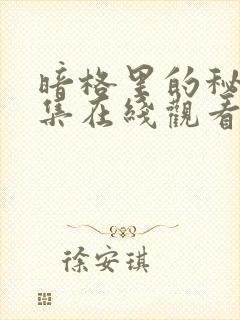 暗格里的秘
集在线觀看
徐安琪